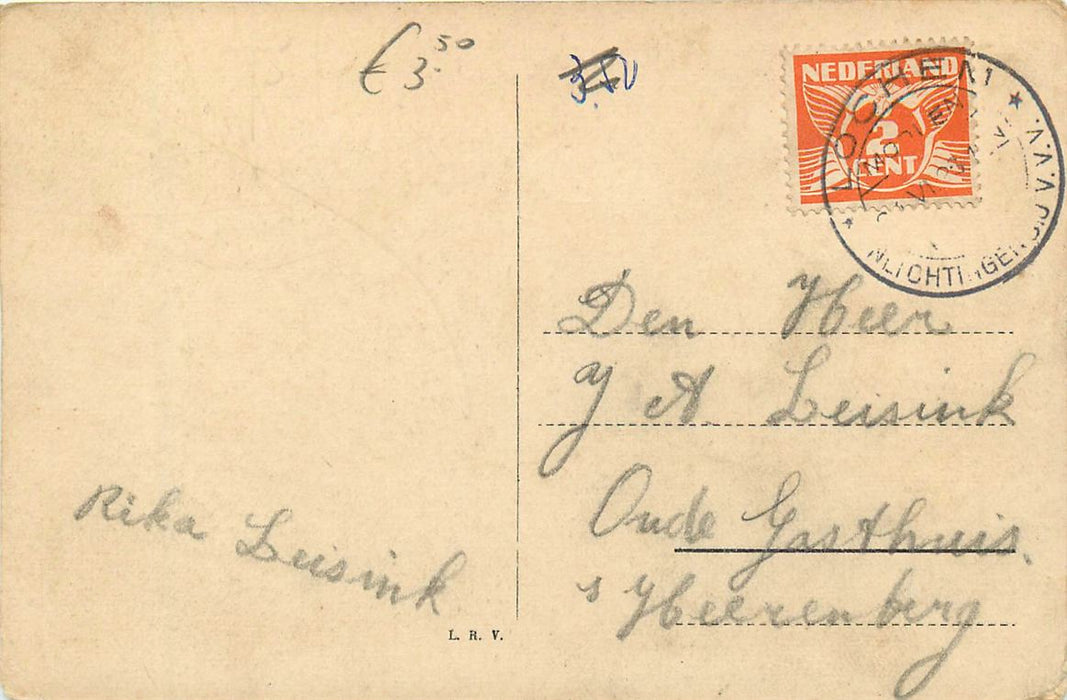 € 3.50
3.50
NEDERLAND
2
CENT
LOCHEM
INLICHTINGEN BIJ V.V.V.
Den Heer
J A. Leisink
Oude Gasthuis.
s Heerenberg
Rika Leisink
L. R. V.